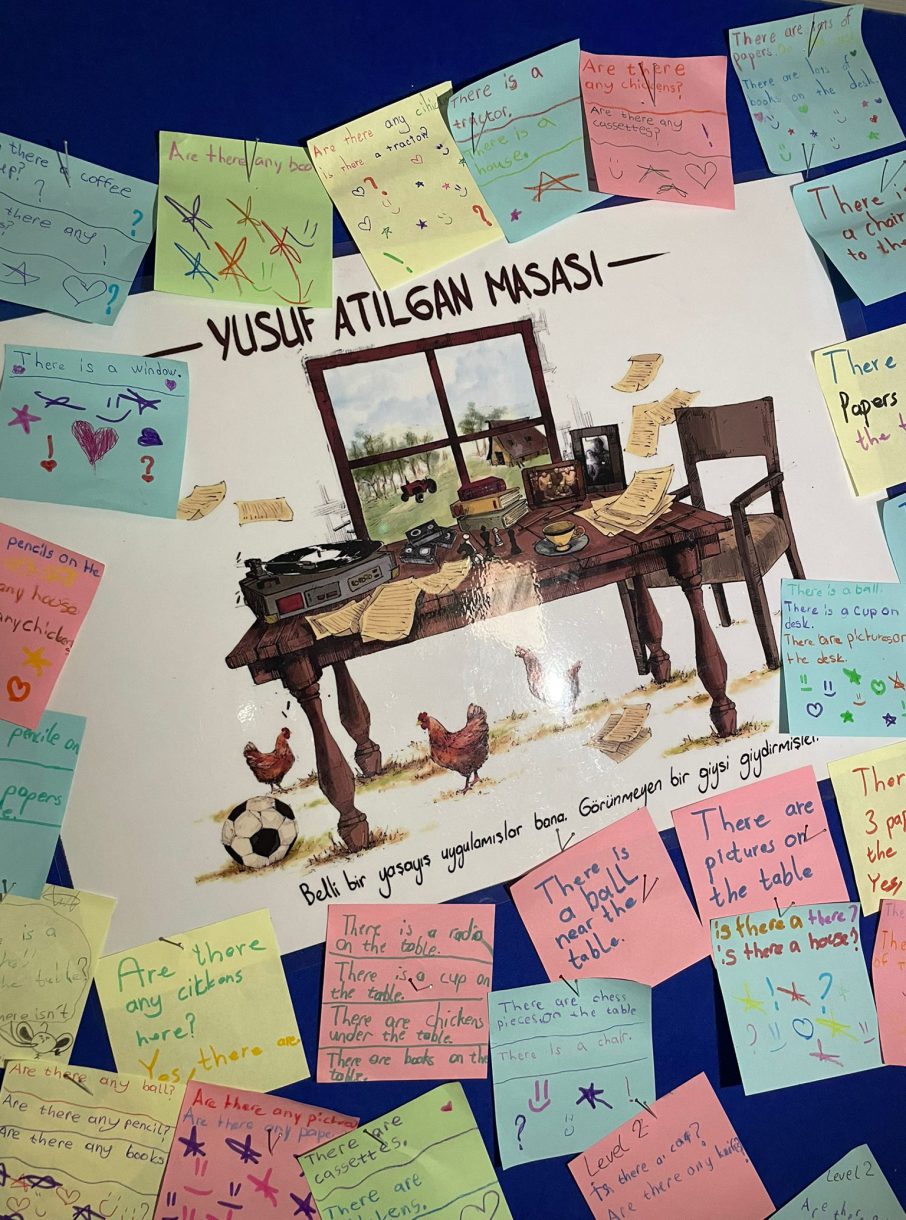 There are lots of
papers.
There are lots of
books on the desk.
Are there
any chickens?
Are there any
cassettes?
There is a
tractor.
There is a
house.
Are there any
Is there a tractor?
Are there any
there a coffee
there any
There is
a chair
to the
— YUSUF ATILGAN MASASI —
There is a window.
There
Papers
the t
pencils on the
any house
any chicken
pencile on
papers
There is a ball.
There is a cup on
desk.
There are pictures on
the desk.
Belli bir yaşayış uygulamışlar bana. Görünmeyen bir giysi giydirmişler.
There is
a ball
near the
table.
There are
pictures on
the table
3 pap
the
Yes,
is a
here isn't
Are there
any cikkens
here?
Yes, there are
There is a radio
on the table.
There is a cup on
the table.
There are chickens
under the table.
There are books on the
table.
There are chess
pieces on the table
There is a chair.
is there a there?
is there a house?
Are there any ball?
Are there any pencil?
Are there any books
Are there any pictur
Are there any pape
There are
cassettes.
There are
Level 2
Is there a car?
Are there any
Level 2
Are ther